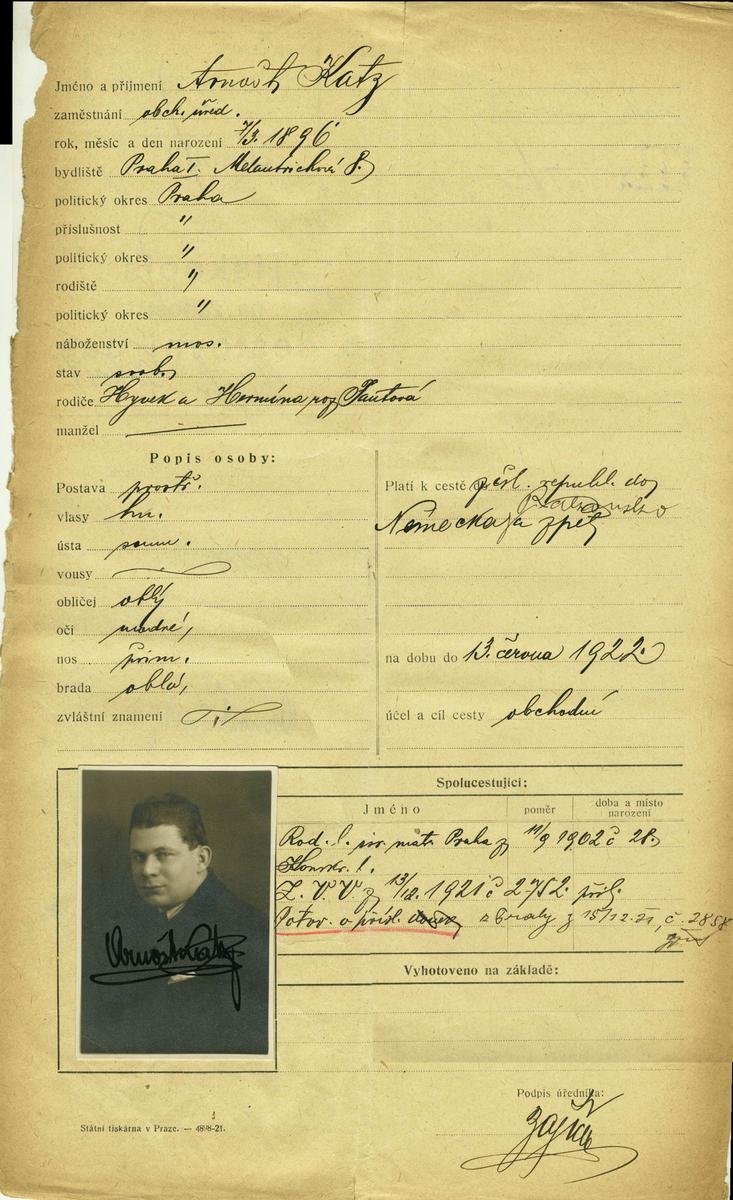 Jméno a příjmení Arnošt Katz
zaměstnání obch. úřed.
rok, měsíc a den narození 7/3. 1896
bydliště Praha I. Melantrichová 8.
politický okres Praha
příslušnost "
politický okres "
rodiště "
politický okres "
náboženství mos.
stav svob.
rodiče Hynek a Hermína roz.
manžel —
Popis osoby:
Postava prostř.
vlasy hn.
ústa soum.
vousy
obličej oblý
oči modré,
nos přim.
brada oblá,
zvláštní znamení
Platí k cestě do čsl. republ. do
Rakouska
Německa a zpět
na dobu do 13. června 1922.
účel a cíl cesty obchodní
Spolucestující:
Jméno
poměr
doba a místo
narození
Rod. l. isr. matr. Praha z 11/9 1902 č 28.
Konskr. l.
Z. V. V. z 13/12. 1921 č 2752. přil.
Potvr. o přísl. z Prahy z 15/12. 21, č. 2858
Arnošt Katz
Vyhotoveno na základě:
Podpis úředníka:
Zajíc
Státní tiskárna v Praze. — 4898-21.